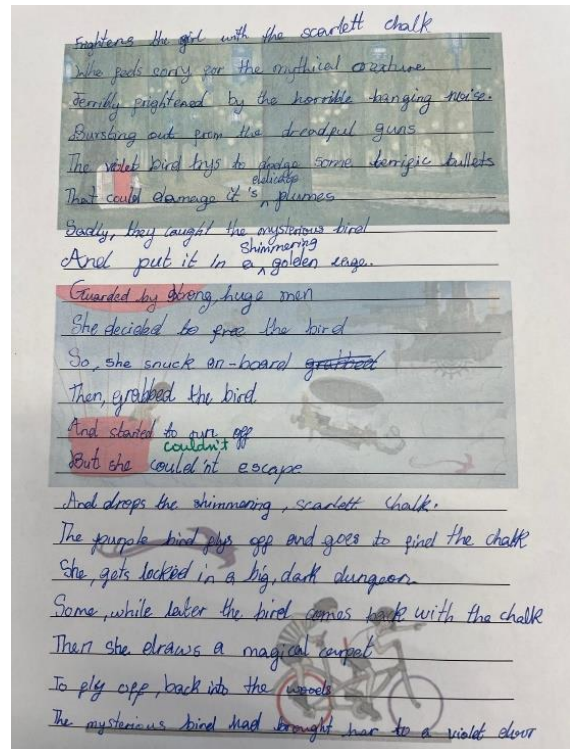 Frightens the girl with the scarlett chalk
Who feels sorry for the mythical creature
Terribly frightened by the horrible banging noise.
Bursting out from the dreadful guns
The violet bird trys to dodge some terrific bullets
That could damage it's delicate plumes
Sadly, they caught the mysterious bird
And put it in a shimmering golden cage.
Guarded by strong, huge men
She decided to free the bird
So, she snuck on-board grabbed
Then, grabbed the bird.
And started to run off
couldn't
But she could'nt escape
And drops the shimmering, scarlett chalk.
The purple bird flys off and goes to find the chalk
She, gets locked in a big, dark dungeon.
Some, while later the bird comes back with the chalk
Then she draws a magical carpet
To fly off, back into the woods
The mysterious bird had brought har to a violet door